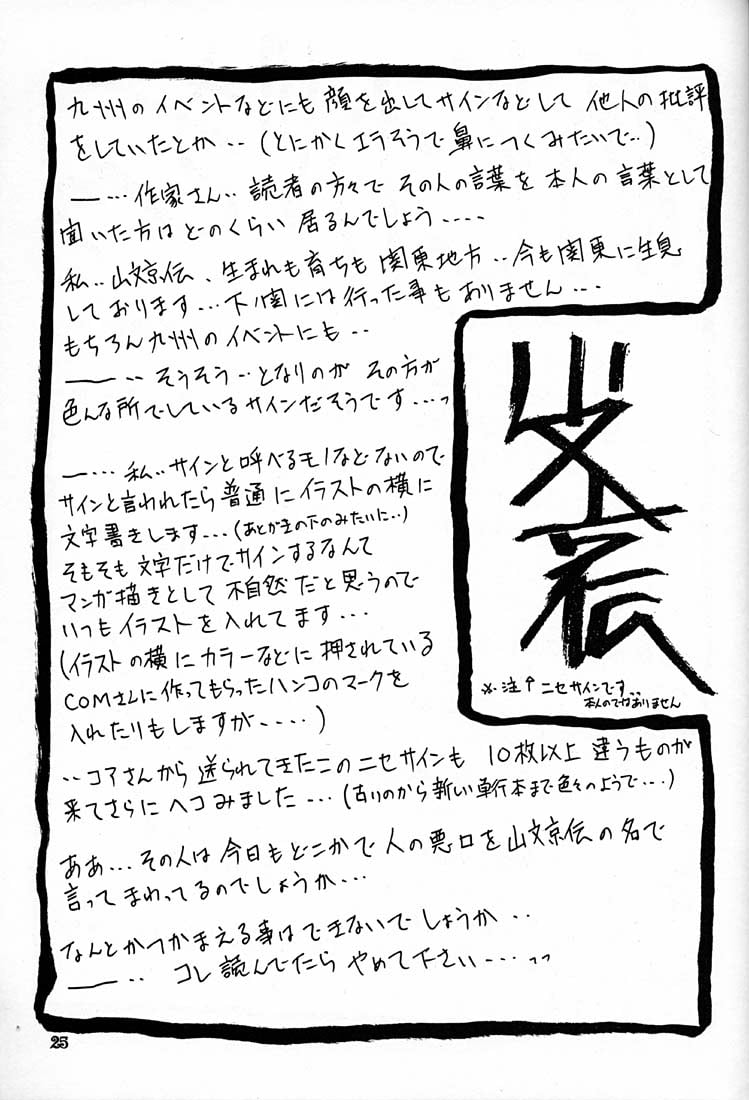 九州のイベントなどにも顔を出してサインなどして他人の批評
をしていたとか‥(とにかくエラそうで鼻につくみたいで‥)
―…作家さん‥読者の方々でその人の言葉を本人の言葉として
聞いた方はどのくらい居るんでしょう‥‥
私‥山文京伝、生まれも育ちも関東地方‥今も関東に生息
しております…下関には行った事もありません…
もちろん九州のイベントにも‥
―‥そうそう‥となりのが その方が
色んな所でしているサインだそうです…っ
―…私‥サインと呼べるモノなどないので
サインと言われたら普通にイラストの横に
文字書きします…(あとがきの下のみたいに‥)
そもそも文字だけでサインするなんて
マンガ描きとして不自然だと思うので
いつもイラストを入れてます…
(イラストの横にカラーなどに押されている
COMさんに作ってもらったハンコのマークを
入れたりもしますが‥‥)
山文京伝
※注↑ニセサインです‥
本人のではありません
‥コアさんから送られてきたこのニセサインも 10枚以上違うものが
来てさらにヘコみました…(古いのから新しい単行本まで色々のようで…)
ああ…その人は今日もどこかで人の悪口を山文京伝の名で
言ってまわってるのでしょうか…
なんとかつかまえる事はできないでしょうか‥
―‥ コレ読んでたら やめて下さい…っっ
25